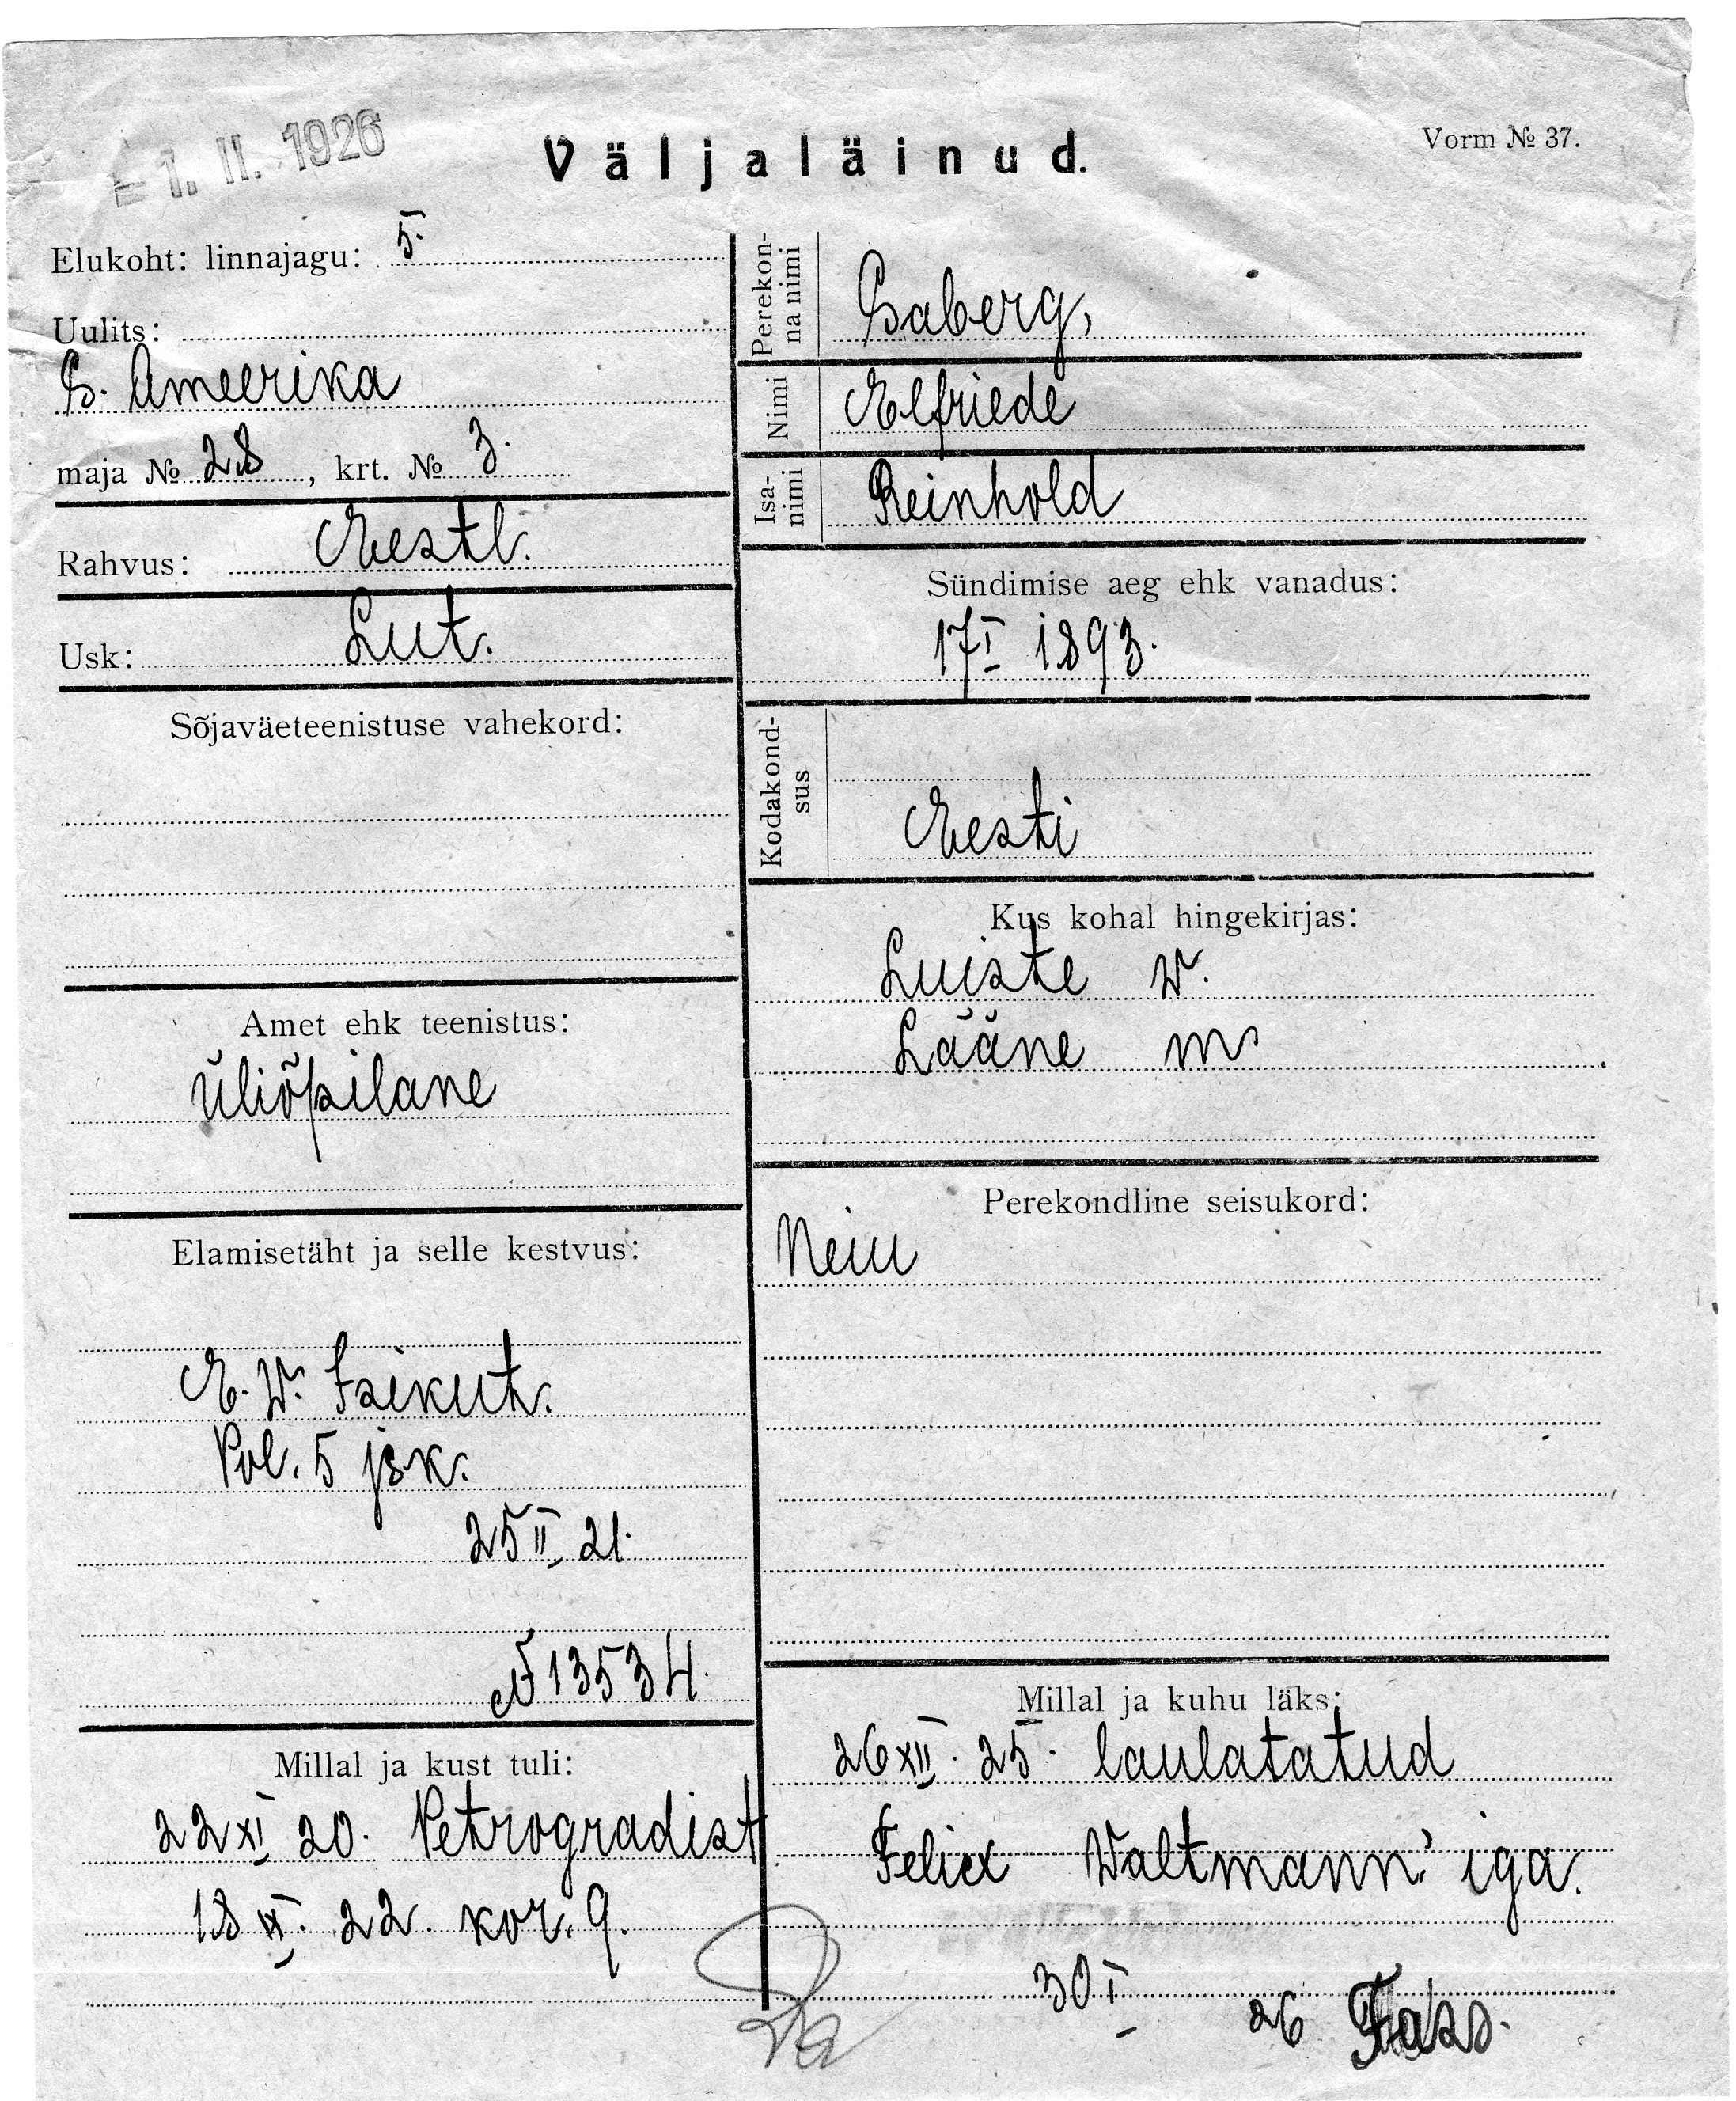 - 1. II. 1926
Väljaläinud.
Vorm № 37.
Elukoht: linnajagu: 5.
Uulits:
S. Ameerika
maja № 28, krt. № 3.
Rahvus: Eestl.
Usk: Lut.
Sõjaväeteenistuse vahekord:
Amet ehk teenistus:
Üliõpilane
Elamisetäht ja selle kestvus:
E. W. Isikut.
Pol. 5 jsk.
25 II 21.
№ 13534.
Millal ja kust tuli:
22 XI 20. Petrogradist
18 IX. 22. kor. 9.
Perekon-
na nimi
Saberg,
Nimi
Elfriede
Isa-
nimi
Reinhold
Sündimise aeg ehk vanadus:
17 I 1893.
Kodakond-
sus
Eesti
Kus kohal hingekirjas:
Luiste w.
Lääne m
Perekondline seisukord:
Neiu
Millal ja kuhu läks:
26 XII. 25. laulatatud
Felix Waltmann'iga.
30 I 26